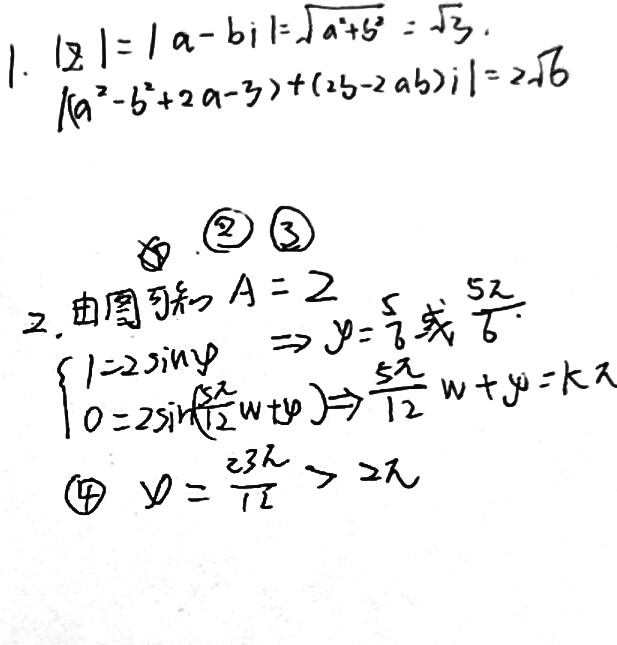 1. |z|=|a-bi|=√(a²+b²)=√3.
|(a²-b²+2a-3)+(2b-2ab)i|=2√6
② ③
2. 由图可知 A=2
{1=2sinφ ⇒ φ=5/6或5π/6.
0=2sin(5π/12 w+φ)⇒ 5π/12 w+φ=kπ
④ φ=23π/12 > 2π